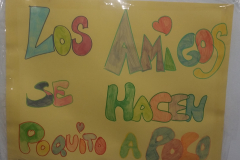 Los AmigoS
SE HACEN
PoQuito A Poco